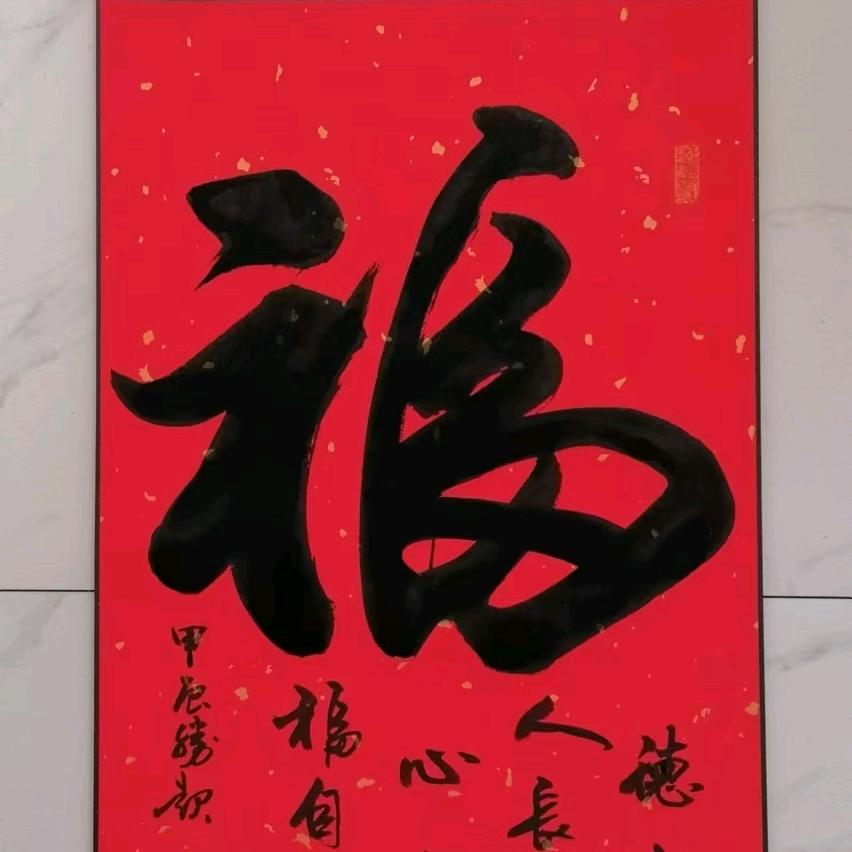 福
德
人長
心
福自
甲辰勝